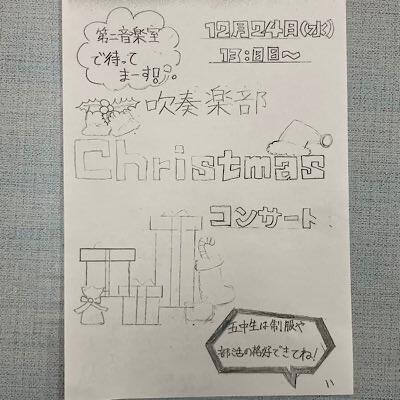 第二音楽室
で待って
まーす!!
12月24日(水)
13:00~
吹奏楽部
Christmas
コンサート
五中生は制服や
部活の格好できてね!